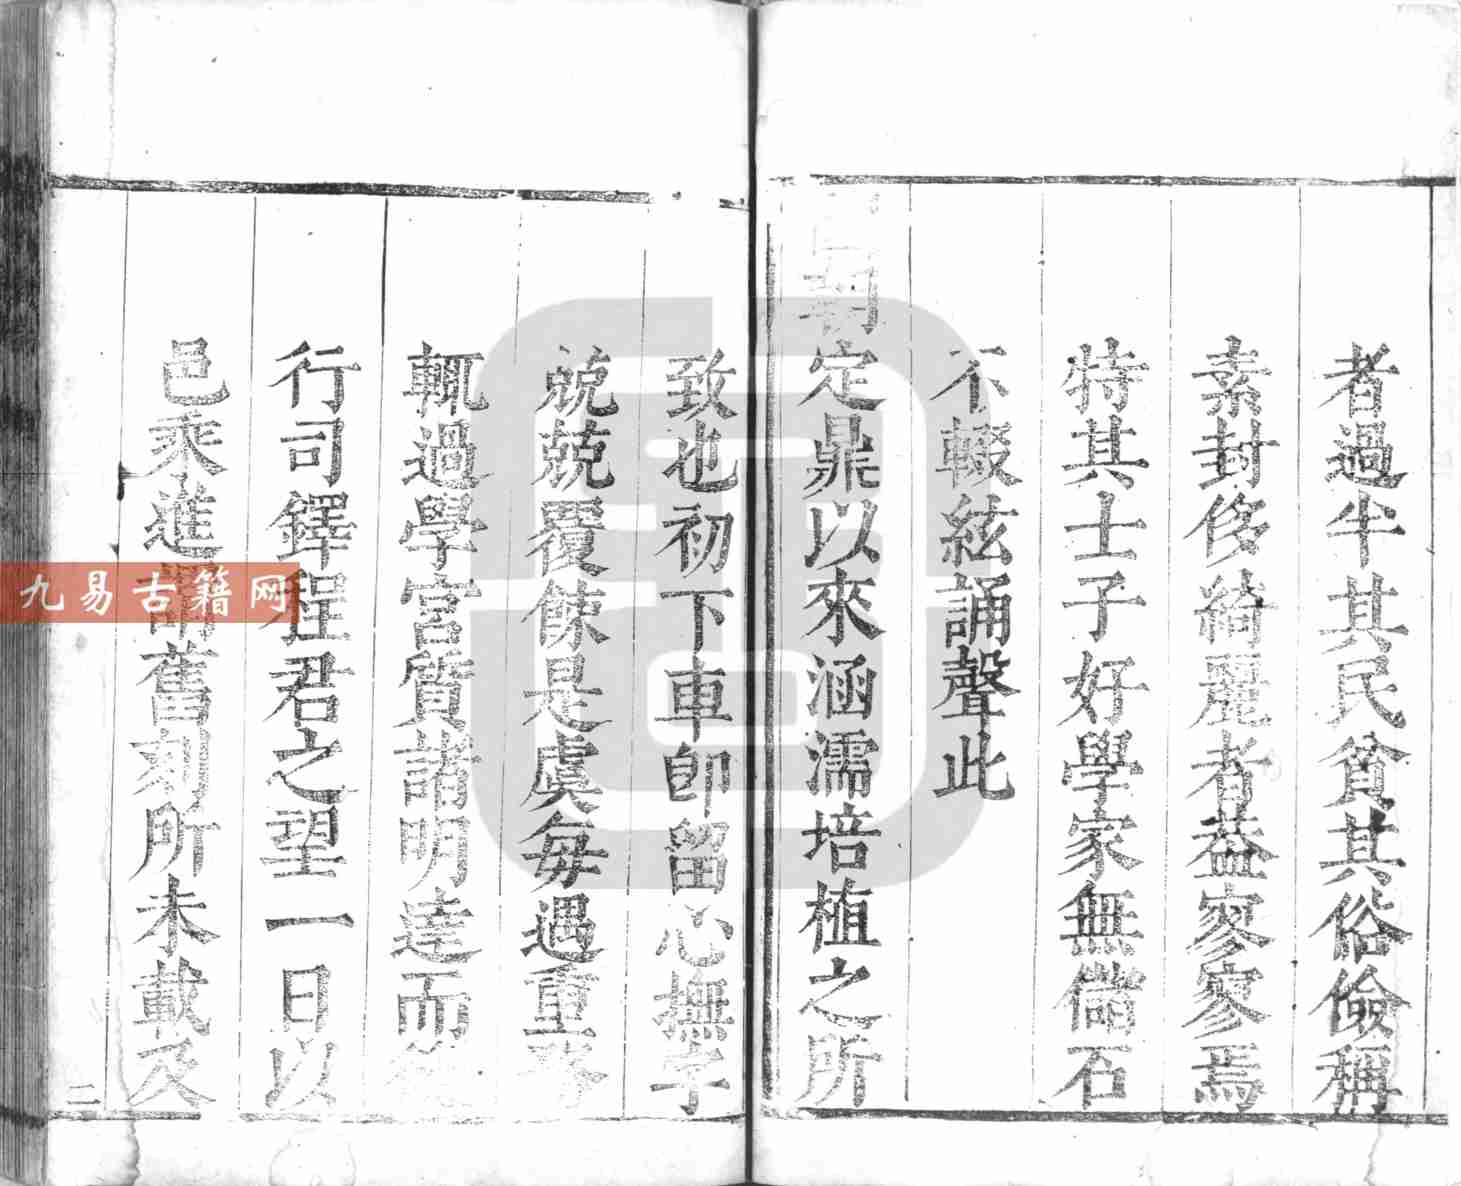 者過半其民貧其俗儉稱
素封侈綺麗者葢寥寥焉
特其士子好學家無儲石
不輟絃誦聲此
國朝定鼎以來涵濡培植之所
致也初下車卽留心撫字
兢兢覆餗是虞每遇重務
輒過學宮質諸明達而
行司鐸程君之望一日以
邑乘進謂舊刻所未載及
二
九易古籍网